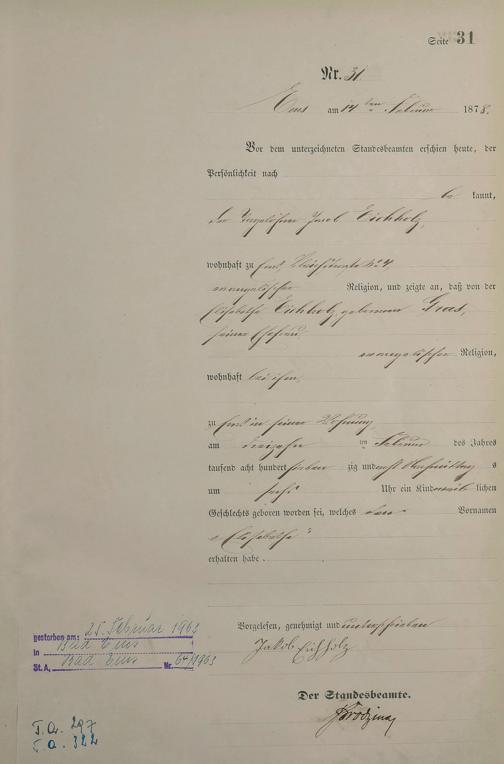 Seite 31
Nr. 31.
Ems am 14 ten Februar 1878.
Vor dem unterzeichneten Standesbeamten erschien heute, der
Persönlichkeit nach
be kannt,
der Tagelöhner Jacob Eichholz,
wohnhaft zu Ems, 24,
evangelischer Religion, und zeigte an, daß von der
Elisabethe Eichholz, geborenen Gras,
seiner Ehefrau,
evangelischer Religion,
wohnhaft bei ihm,
zu Ems in seiner Wohnung
am dreizehn ten Februar des Jahres
tausend acht hundert sieben zig und acht Nachmittag s
um sechs Uhr ein Kind weib lichen
Geschlechts geboren worden sei, welches den Vornamen
"Elisabethe"
erhalten habe.
Vorgelesen, genehmigt und unterschrieben
Jakob Eichholz
Der Standesbeamte.
gestorben am: 25. Februar 1963
in Bad Ems
St. A. Bad Ems Nr. 64/1963
T.a. 297
T.a. 322